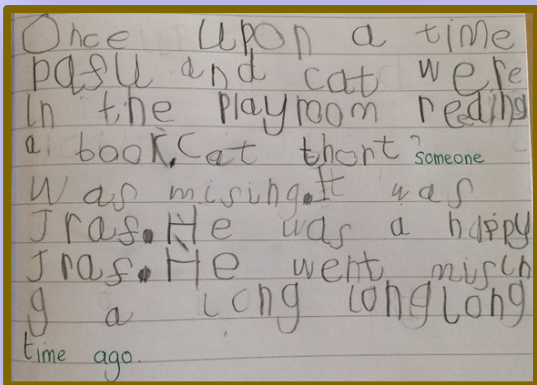 Once upon a time
pasu and cat were
in the playroom reding
a book. Cat thort someone
was mising. It was
Jras. He was a happy
Jras. He went misin
g a long long long
time ago.